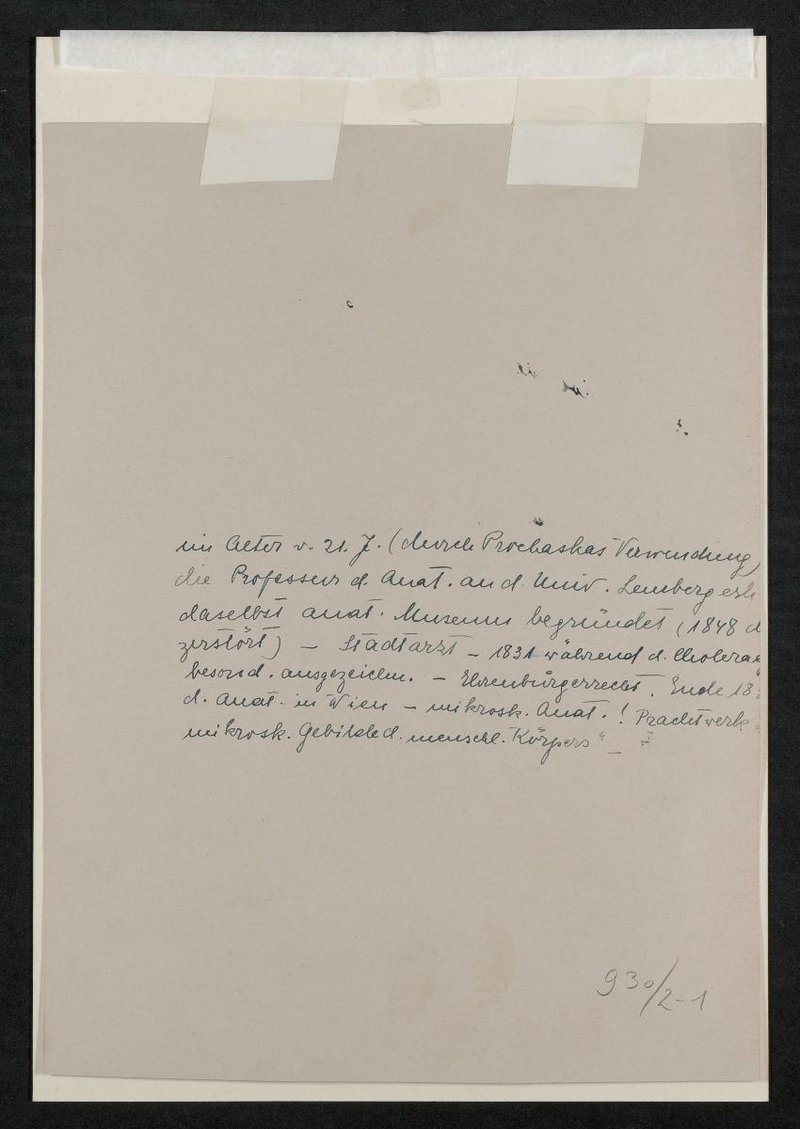 im Alter v. 21. J. (durch Prochaskas Verwendung)
die Professur d. Anat. an d. Univ. Lemberg erh
daselbst anat. Museum begründet (1848 d
zerstört) – Stadtarzt – 1831 während d. Cholera
besond. ausgezeichn. – Ehrenbürgerrecht. Ende 18
d. Anat. in Wien – mikrosk. Anat. ! Prachtwerk
mikrosk. Gebilde d. menschl. Körpers" –
930/2-1